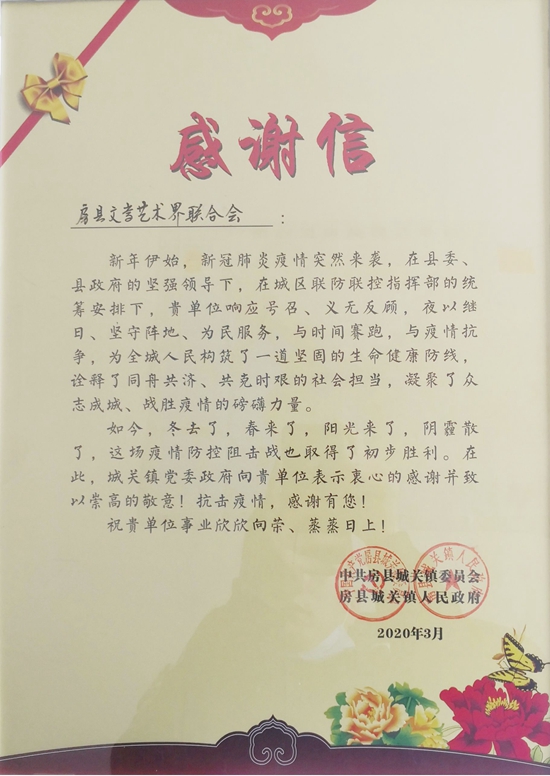 感谢信
房县文学艺术界联合会：
新年伊始，新冠肺炎疫情突然来袭，在县委、
县政府的坚强领导下，在城区联防联控指挥部的统
筹安排下，贵单位响应号召、义无反顾，夜以继
日、坚守阵地、为民服务，与时间赛跑，与疫情抗
争，为全城人民构筑了一道坚固的生命健康防线，
诠释了同舟共济、共克时艰的社会担当，凝聚了众
志成城、战胜疫情的磅礴力量。
如今，冬去了，春来了，阳光来了，阴霾散
了，这场疫情防控阻击战也取得了初步胜利。在
此，城关镇党委政府向贵单位表示衷心的感谢并致
以崇高的敬意！抗击疫情，感谢有您！
祝贵单位事业欣欣向荣、蒸蒸日上！
中共房县城关镇委员会
房县城关镇人民政府
2020年3月